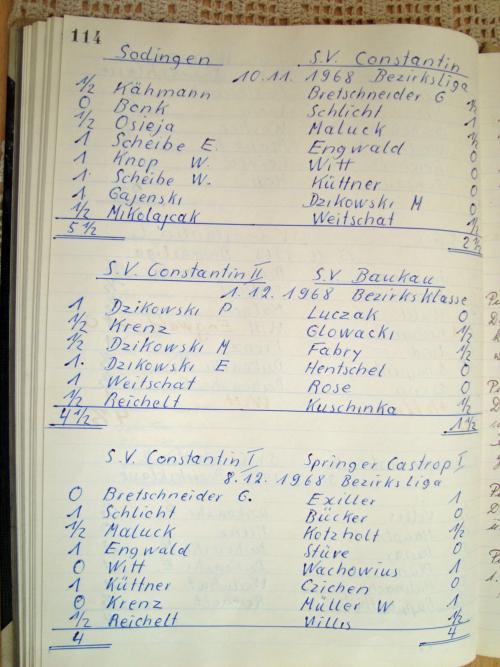 114
Sodingen S.V. Constantin
10.11. 1968 Bezirksliga
1/2 Kähmann Bretschneider G 1/2
0 Bonk Schlicht 1
1/2 Osieja Maluck 1/2
1 Scheibe E. Engwald 0
1 Knop W. Witt 0
1. Scheibe W. Küttner 0
1 Gajenski Dzikowski M 0
1/2 Mikolajcak Weitschat 1/2
5 1/2 2 1/2
S.V. Constantin II S.V Baukau
1. 12. 1968 Bezirksklasse
1 Dzikowski P Luczak 0
1/2 Krenz Glowacki 1/2
1/2 Dzikowski M Fabry 1/2
1. Dzikowski E Hentschel 0
1 Weitschat Rose 0
1/2 Reichelt Kuschinka 1/2
4 1/2 1 1/2
S.V. Constantin I Springer Castrop I
8.12. 1968 Bezirsliga
0 Bretschneider G. Exiller 1
1 Schlicht Bücker 0
1/2 Maluck Kotzholt 1/2
1 Engwald Stüve 0
0 Witt Wachowius 1
1 Küttner Czichen 0
0 Krenz Müller W 1
1/2 Reichelt Villis 1/2
4 4